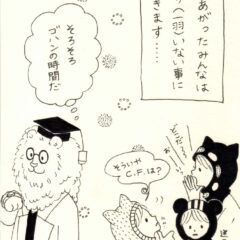 あがったみんなは
(一羽)いない事に
きます・・・・
そろそろ
ゴハンの時間だ
そういや
C.F.は?